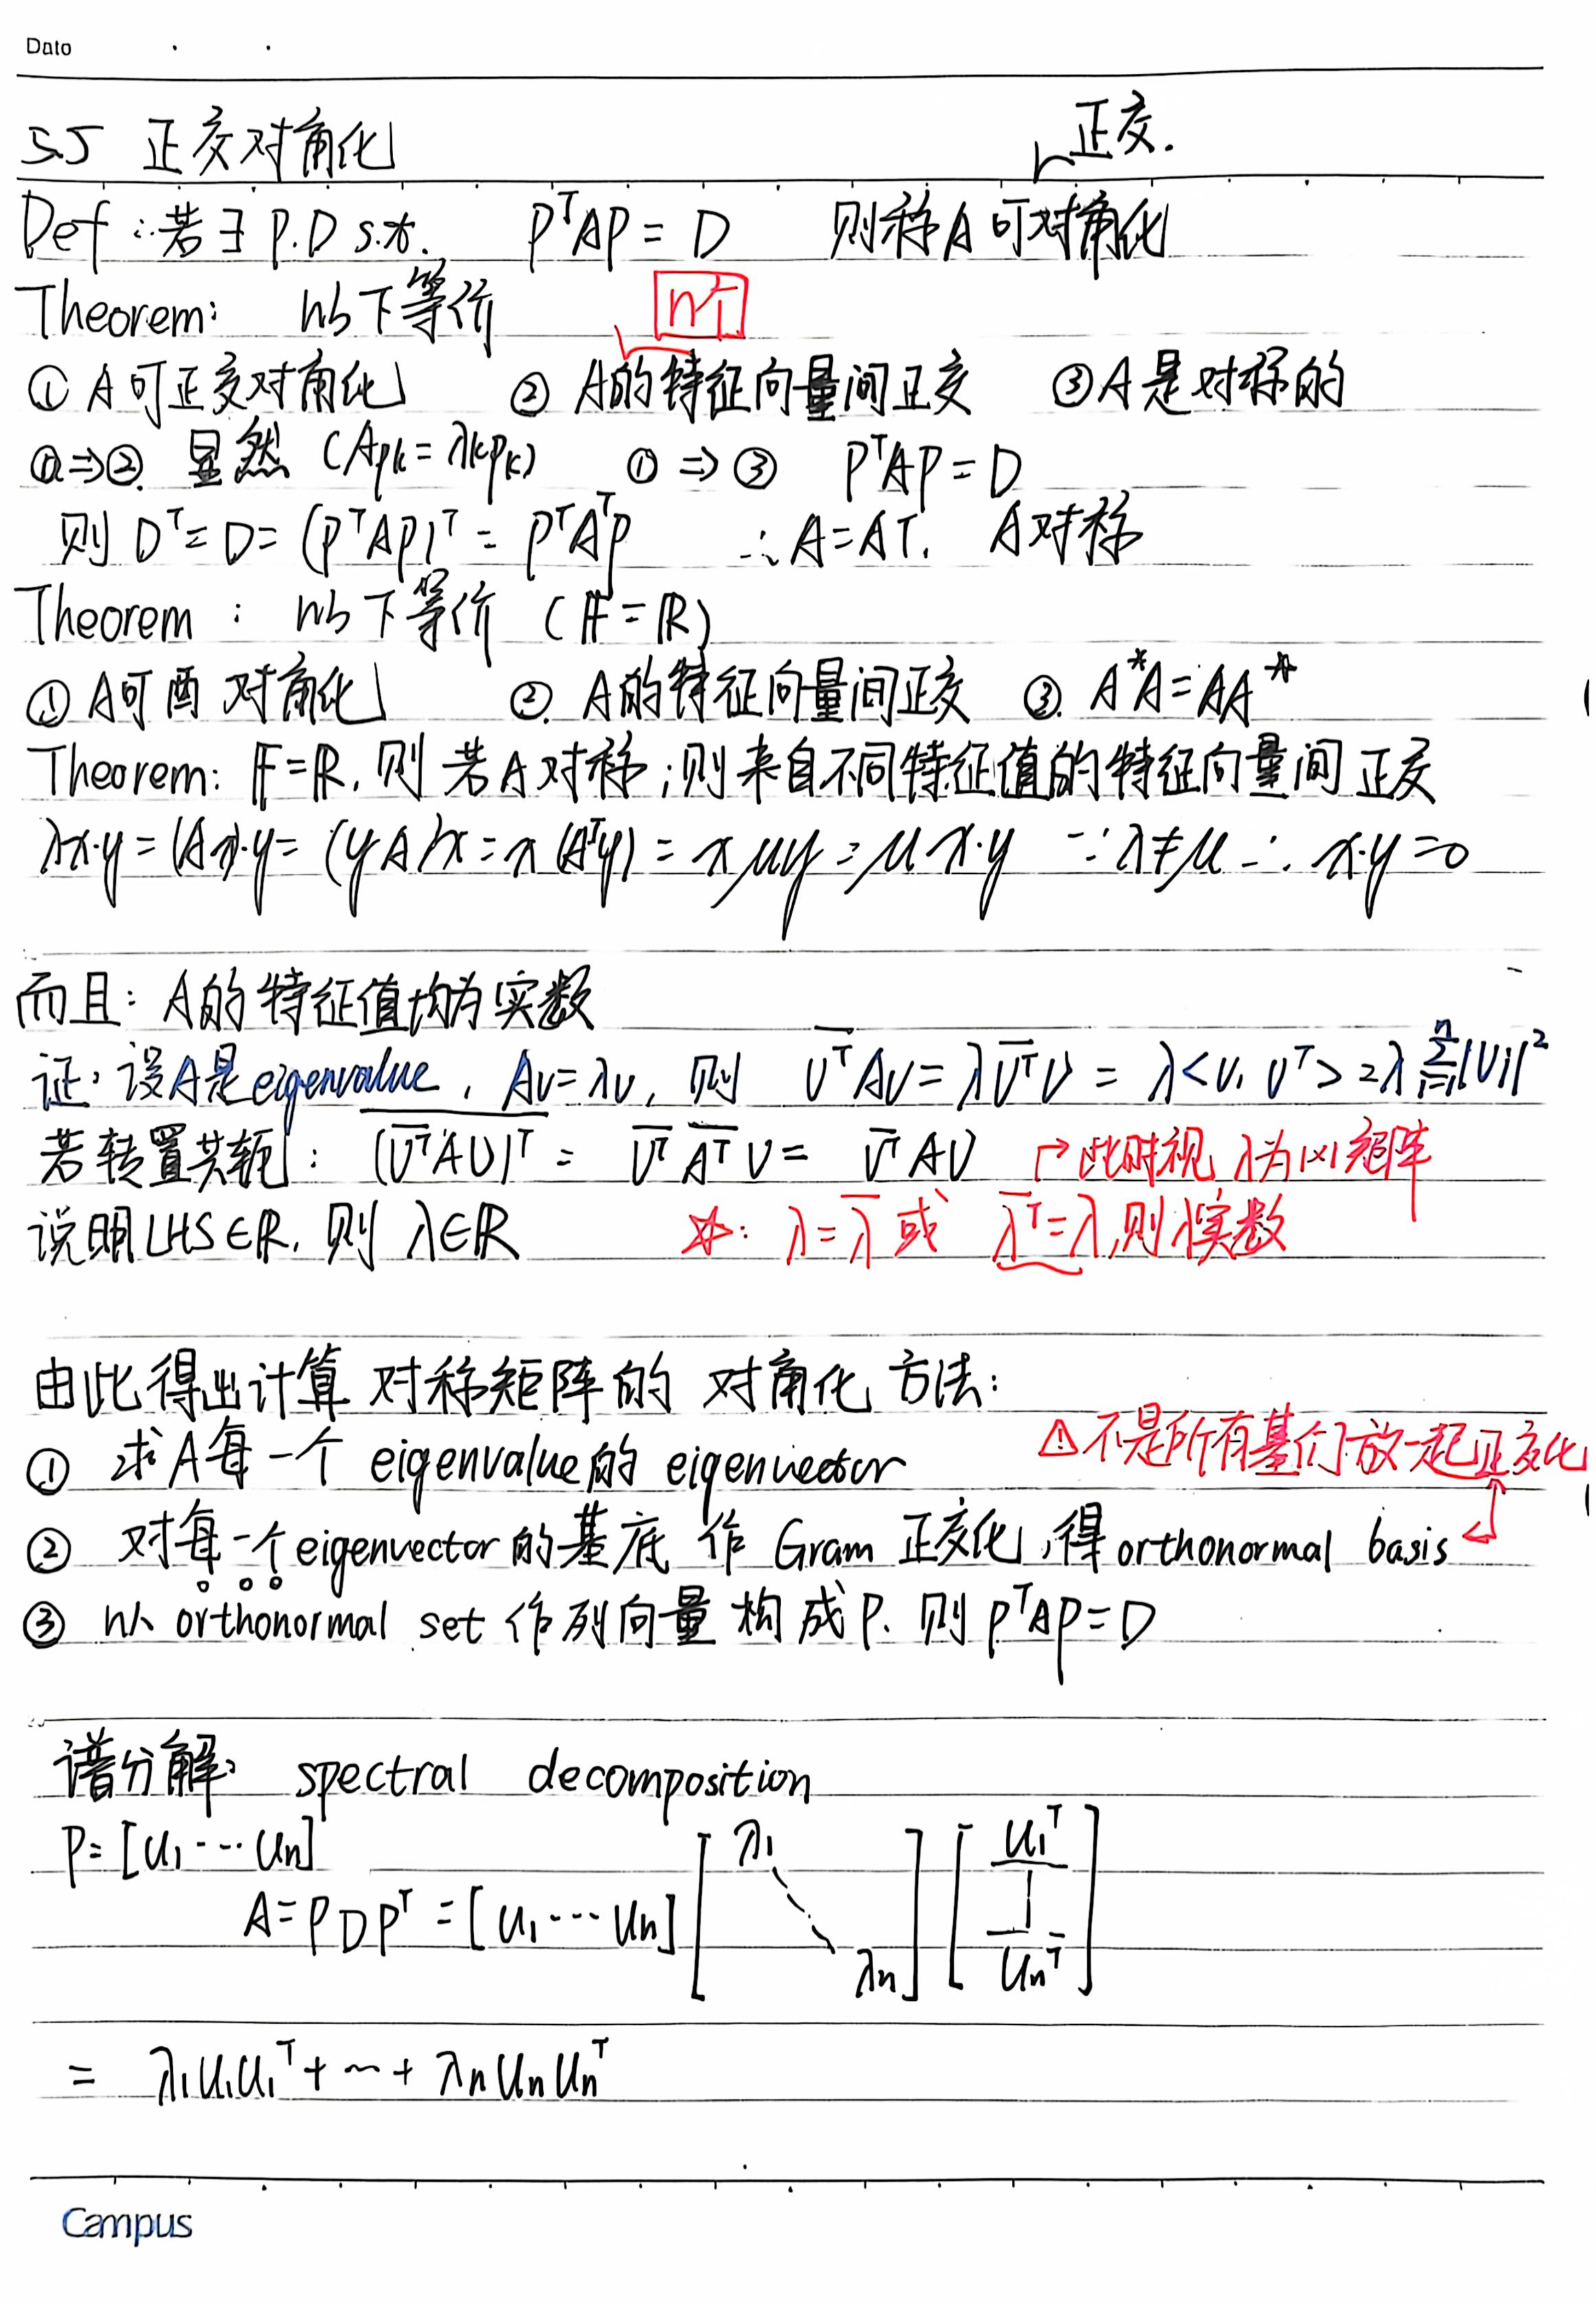 Date
5.5 正交对角化
正交.
Def: 若∃ P.D s.t. PᵀAP = D 则称A可对角化
Theorem: 以下等价
n个
① A可正交对角化 ② A的特征向量间正交 ③ A是对称的
①⇒② 显然 (Apk = λkpk) ① ⇒ ③ PᵀAP = D
则 Dᵀ = D = (PᵀAP)ᵀ = PᵀAᵀP ∴ A = Aᵀ. A对称
Theorem : 以下等价 (𝔽 = ℝ)
① A可酉对角化 ② A的特征向量间正交 ③. A*A = AA*
Theorem: 𝔽=ℝ, 则 若A对称; 则来自不同特征值的特征向量间正交
λx·y = (Ax)·y = (yA)x = x(Aᵀy) = xμy = μx·y ∵ λ≠μ ∴ x·y = 0
而且: A的特征值均为实数
证: 设A是eigenvalue, Av = λv, 则 v̅ᵀAv = λv̅ᵀv = λ<v, vᵀ> = λ∑ⁿᵢ₌₁|vi|²
若转置共轭: (v̅ᵀAv)ᵀ = v̅ᵀ A̅ᵀ v = v̅ᵀAv → 此时视λ为1×1矩阵
说明LHS∈ℝ, 则 λ∈ℝ ☆: λ = λ̅ 或 λ̅ᵀ = λ, 则λ实数
由此得出计算对称矩阵的对角化方法:
⚠不是所有基们放一起正交化
① 求A每一个eigenvalue的eigenvector
② 对每一个eigenvector的基底作Gram正交化, 得orthonormal basis
③ 以 orthonormal set 作列向量构成P. 则 PᵀAP = D
谱分解: spectral decomposition
P = [u₁ ⋯ un]
A = PDPᵀ = [u₁ ⋯ un] [λ₁ ⋱ λn] [u₁ᵀ | unᵀ]
= λ₁u₁u₁ᵀ + ⋯ + λnununᵀ
Campus